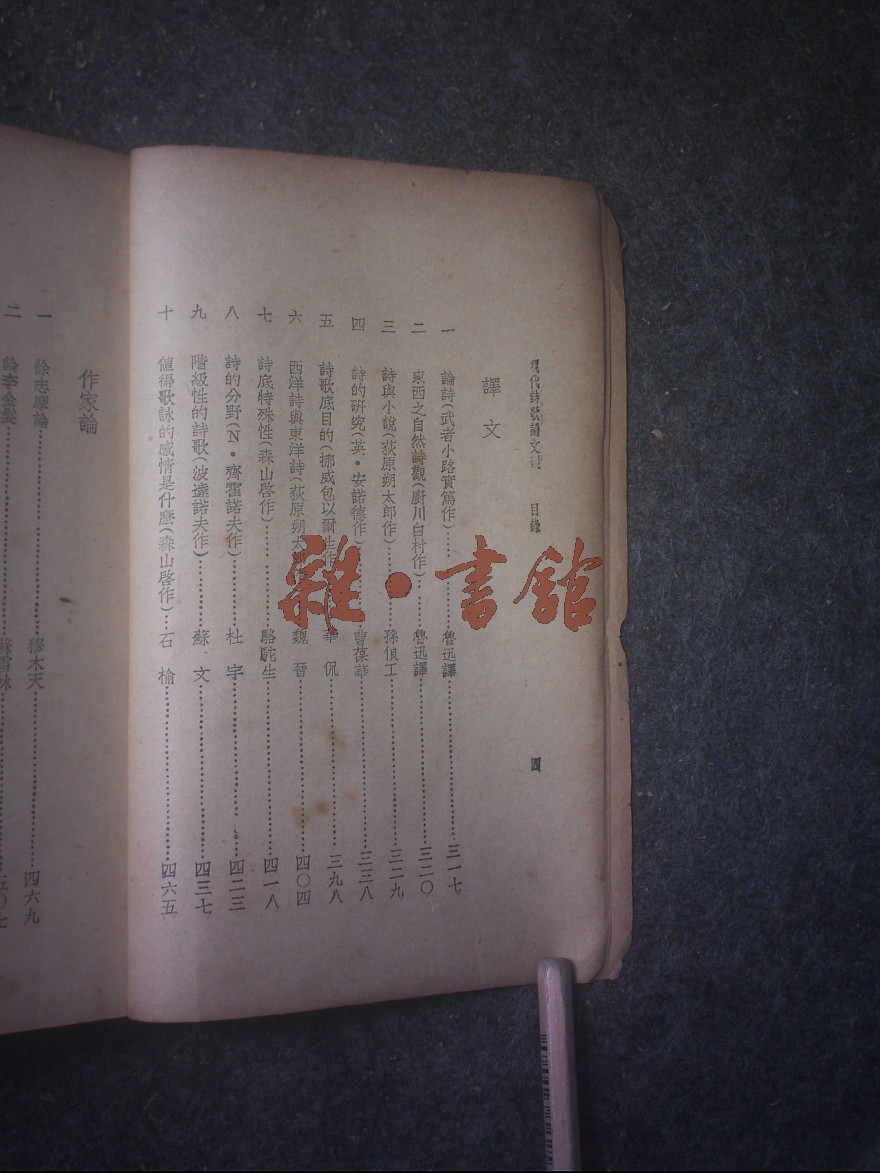 現代詩歌論文選 目錄 四
譯文
一 論詩(武者小路實篤作)……魯迅譯……三一七
二 東西之自然詩觀(廚川白村作)……魯迅譯……三二〇
三 詩與小說(荻原朔太郎作)……孫俍工……三二九
四 詩的研究(英·安諾德作)……曹葆華……三三八
五 詩歌底目的(挪威包以爾生作……華侃……三九八
六 西洋詩與東洋詩(荻原朔太……魏晉……四〇四
七 詩底特殊性(森山啓作)……駱駝生……四一八
八 詩的分野(N·齊霍諾夫作)……杜宇……四二三
九 階級性的詩歌(波達諾夫作)……蘇文……四三七
十 值得歌詠的感情是什麼(森山啓作)…石榆……四六五
作家論
一 徐志摩論……穆木天……四六九
二 論李金髮……蘇雪林……五〇七
雜·書館